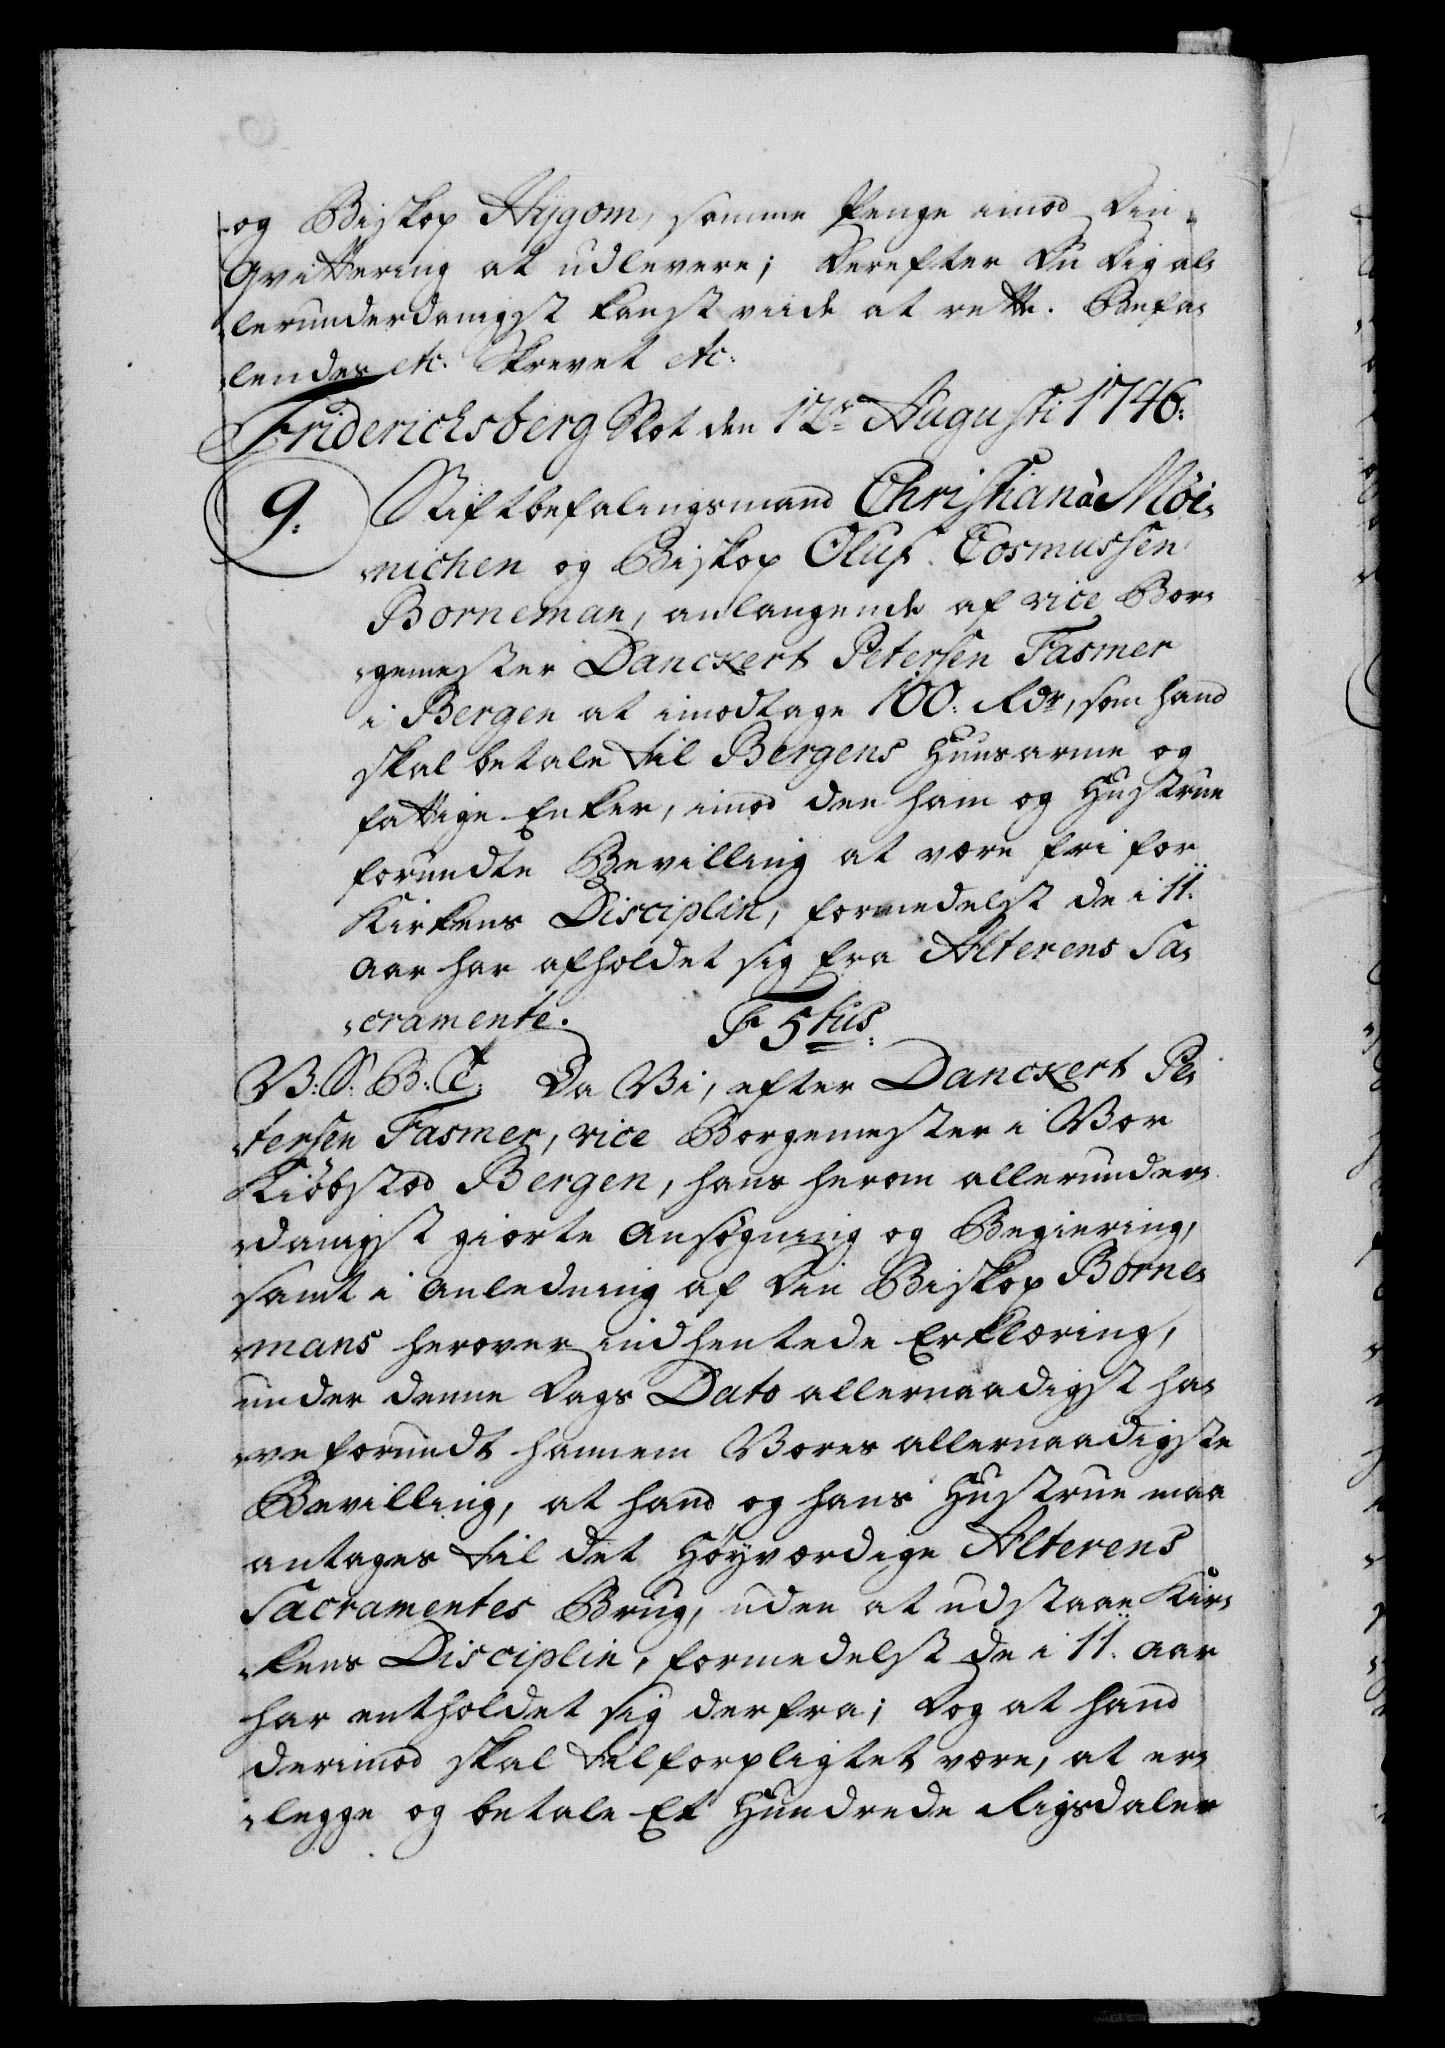 og Biskop Hygom, samme Penge imod Din
Qvittering at udlevere; Derefter Du dig al-
lerunderdanigst kanst viide at rette. Befa-
lendes etc. Skrevet etc:
Friderichsberg Slot den 12te Augusti 1746.
9. Stiftbefalingsmand Christian à Møi-
nichen og Biskop Oluf Cosmussen
Borneman, anlangende af vice Bor-
gemester Danckert Petersen Fasmer
i Bergen at imodtage 100. Rdr, som hand
skal betale til Bergens Huusarme og
fattige Enker, imod den ham og Hustrue
forundte Bevilling at være fri for
Kirkens Disciplin, formedelst de i 11.
Aar har afholdet sig fra Alterens Sa-
cramente. F 5tus.
V: S: B: T: Da Vi, efter Danckert Pe-
tersen Fasmer, vice Borgemester i Vor
Kiøbstæd Bergen, hans herom allerunder-
danigst giorte Ansøgning og Begiering,
samt i Anledning af Din Biskop Borne-
mans herover indhentede Erklæring,
under denne Dags Dato allernaadigst ha-
ve forundt hannem Vores allernaadigste
Bevilling, at hand og hans Hustrue maa
antages til det Høyværdige Alterens
Sacramentes Brug, uden at udstaae Kir-
kens Disciplin, formedelst de i 11. Aar
har entholdet sig derfra; Dog at hand
derimod skal tilforpligtet være, at er-
legge og betale Et Hundrede Rigsdaler